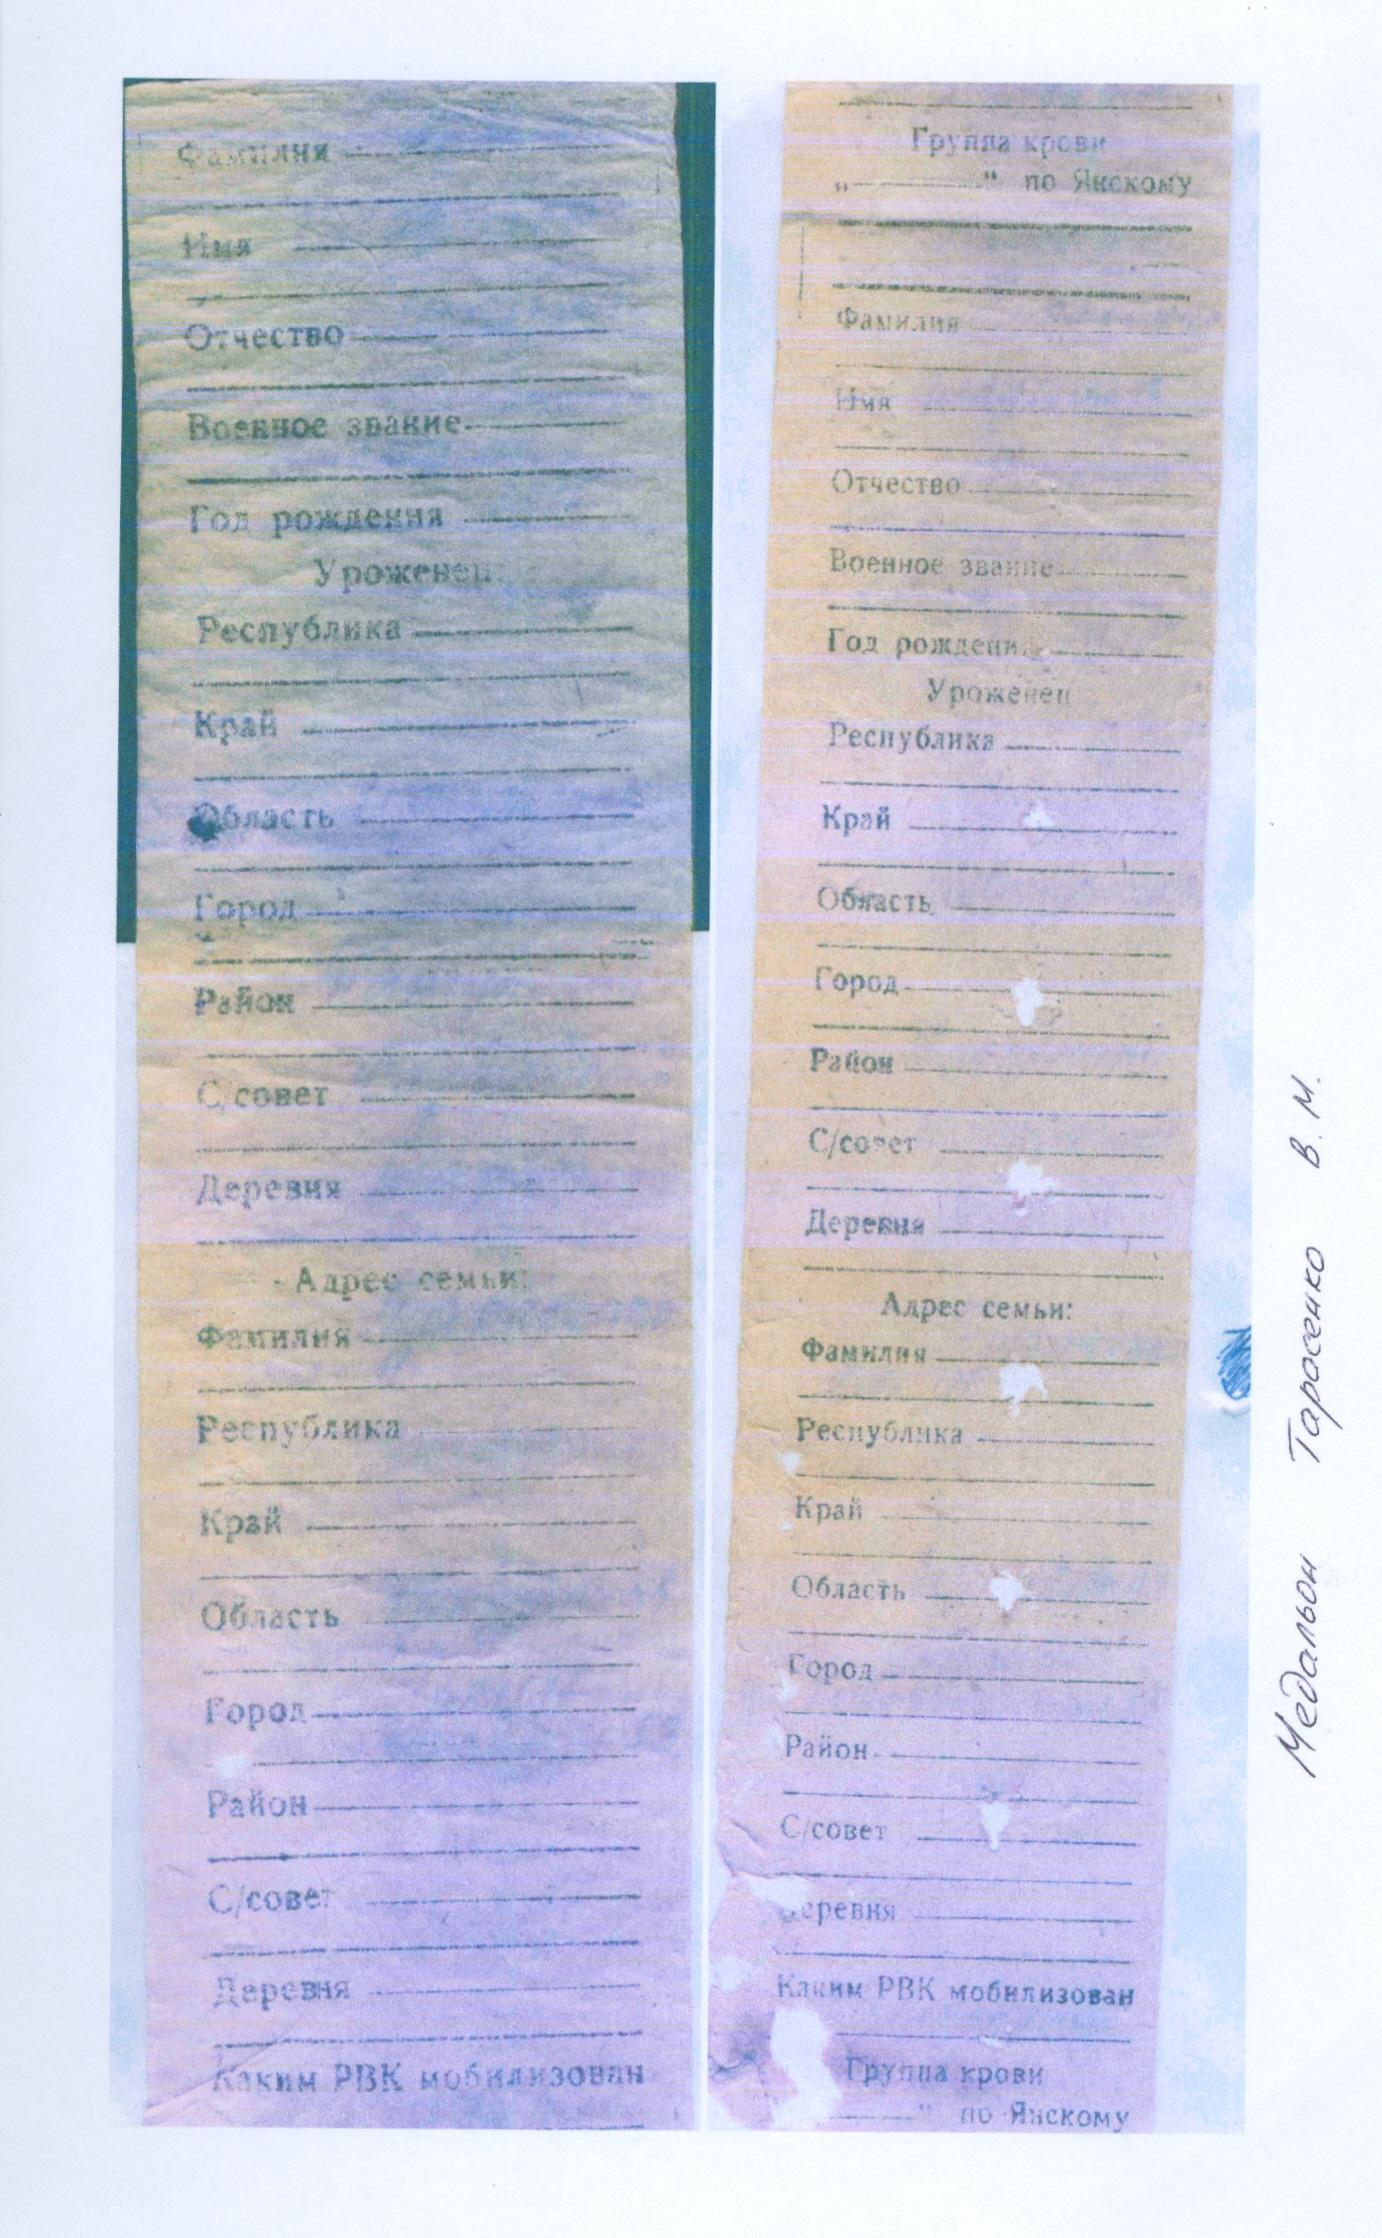 Фамилия
Имя
Отчество
Военное звание
Год рождения
Уроженец:
Республика
Край
Область
Город
Район
С/совет
Деревня
Адрес семьи:
Фамилия
Республика
Край
Область
Город
Район
С/совет
Деревня
Каким РВК мобилизован
Группа крови
„ “ по Янскому
Фамилия
Имя
Отчество
Военное звание
Год рождения
Уроженец
Республика
Край
Область
Город
Район
С/совет
Деревня
Адрес семьи:
Фамилия
Республика
Край
Область
Город
Район
С/совет
Деревня
Каким РВК мобилизован
Группа крови
“ по Янскому
Медальон Тарасенко В. М.